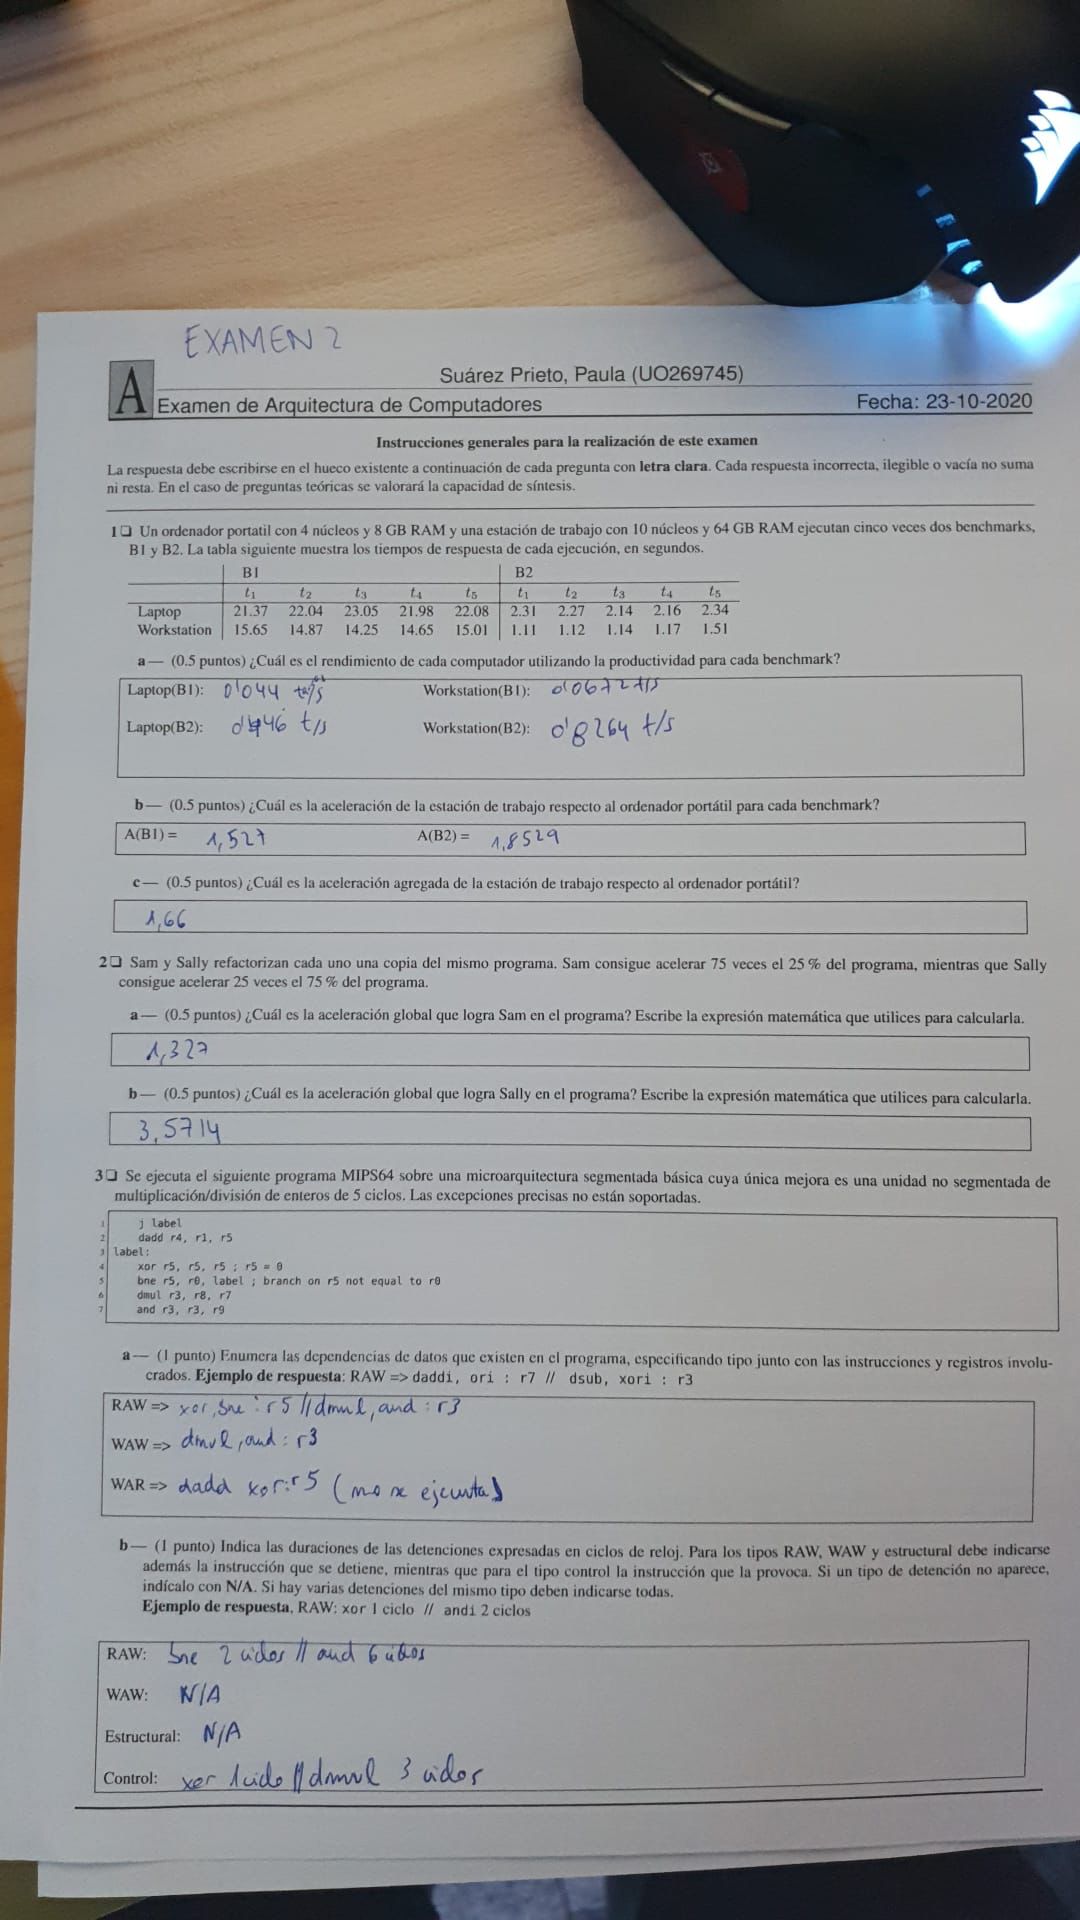 EXAMEN 2
A
Suárez Prieto, Paula (UO269745)
Examen de Arquitectura de Computadores Fecha: 23-10-2020
Instrucciones generales para la realización de este examen
La respuesta debe escribirse en el hueco existente a continuación de cada pregunta con letra clara. Cada respuesta incorrecta, ilegible o vacía no suma
ni resta. En el caso de preguntas teóricas se valorará la capacidad de síntesis.
1❑ Un ordenador portatil con 4 núcleos y 8 GB RAM y una estación de trabajo con 10 núcleos y 64 GB RAM ejecutan cinco veces dos benchmarks,
B1 y B2. La tabla siguiente muestra los tiempos de respuesta de cada ejecución, en segundos.
B1 B2
t1 t2 t3 t4 t5 t1 t2 t3 t4 t5
Laptop 21.37 22.04 23.05 21.98 22.08 2.31 2.27 2.14 2.16 2.34
Workstation 15.65 14.87 14.25 14.65 15.01 1.11 1.12 1.14 1.17 1.51
a— (0.5 puntos) ¿Cuál es el rendimiento de cada computador utilizando la productividad para cada benchmark?
Laptop(B1): 0'044 Workstation(B1): 0'0672 t/s
Laptop(B2): t/s Workstation(B2): 0'8264 t/s
b— (0.5 puntos) ¿Cuál es la aceleración de la estación de trabajo respecto al ordenador portátil para cada benchmark?
A(B1) = 1,527 A(B2) = 1,8529
c— (0.5 puntos) ¿Cuál es la aceleración agregada de la estación de trabajo respecto al ordenador portátil?
1,66
2❑ Sam y Sally refactorizan cada uno una copia del mismo programa. Sam consigue acelerar 75 veces el 25 % del programa, mientras que Sally
consigue acelerar 25 veces el 75 % del programa.
a— (0.5 puntos) ¿Cuál es la aceleración global que logra Sam en el programa? Escribe la expresión matemática que utilices para calcularla.
1,327
b— (0.5 puntos) ¿Cuál es la aceleración global que logra Sally en el programa? Escribe la expresión matemática que utilices para calcularla.
3,5714
3❑ Se ejecuta el siguiente programa MIPS64 sobre una microarquitectura segmentada básica cuya única mejora es una unidad no segmentada de
multiplicación/división de enteros de 5 ciclos. Las excepciones precisas no están soportadas.
1 j label
2 dadd r4, r1, r5
3 label:
4 xor r5, r5, r5 ; r5 = 0
5 bne r5, r0, label ; branch on r5 not equal to r0
6 dmul r3, r8, r7
7 and r3, r3, r9
a— (1 punto) Enumera las dependencias de datos que existen en el programa, especificando tipo junto con las instrucciones y registros involu-
crados. Ejemplo de respuesta: RAW => daddi, ori : r7 // dsub, xori : r3
RAW => xor, bne : r5 // dmul, and : r3
WAW => dmul, and : r3
WAR => dadd xor: r5 (no se ejecuta)
b— (1 punto) Indica las duraciones de las detenciones expresadas en ciclos de reloj. Para los tipos RAW, WAW y estructural debe indicarse
además la instrucción que se detiene, mientras que para el tipo control la instrucción que la provoca. Si un tipo de detención no aparece,
indícalo con N/A. Si hay varias detenciones del mismo tipo deben indicarse todas.
Ejemplo de respuesta, RAW: xor 1 ciclo // andi 2 ciclos
RAW: bne 2 ciclos // and 6 ciclos
WAW: N/A
Estructural: N/A
Control: xor 1 ciclo // dmul 3 ciclos